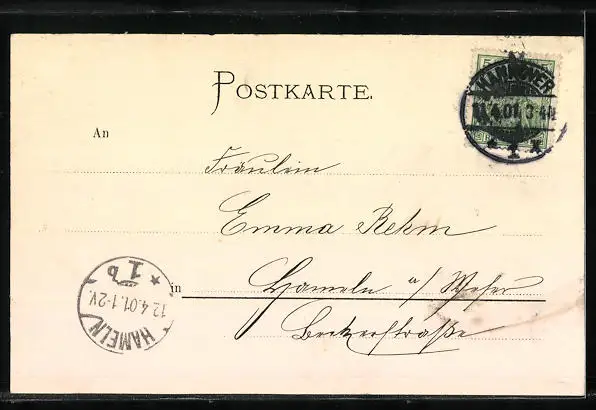 POSTKARTE.
HANNOVER
11.4.01. 3-4N
1
An
Fräulein
Emma Rehm
in Hameln a/ Weser
Beckerstraße
HAMELN
12.4.01. 1-2V.
1b